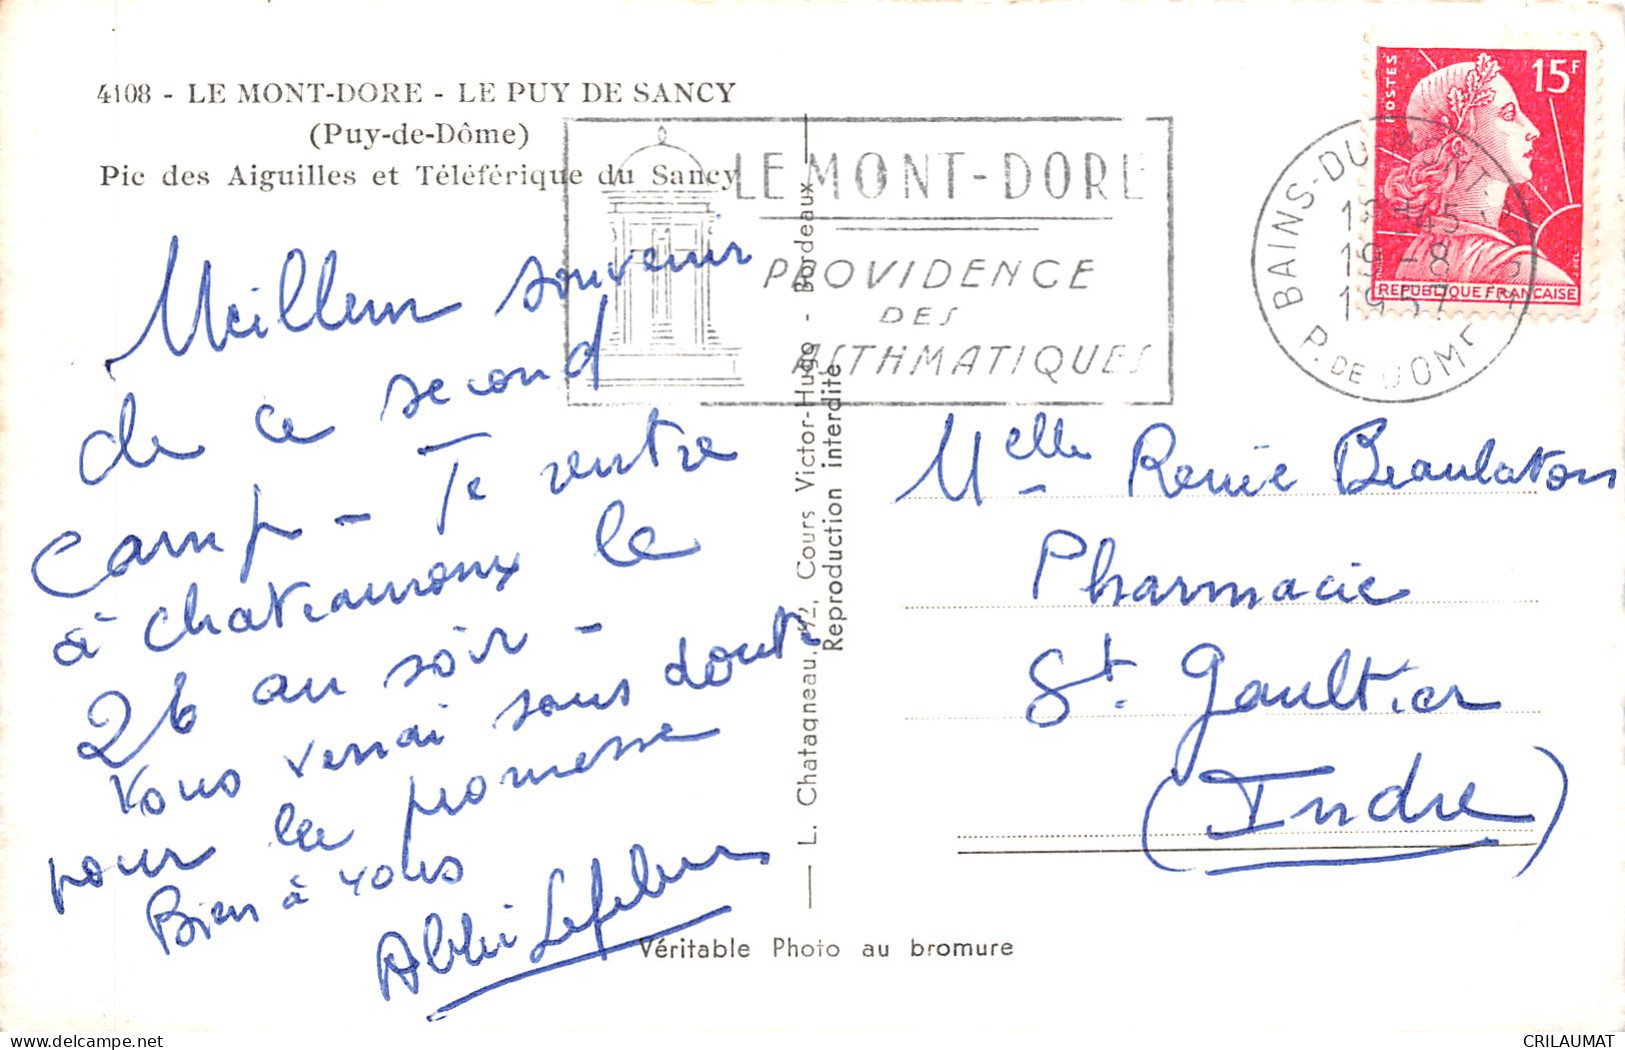 4108 - LE MONT-DORE - LE PUY DE SANCY
(Puy-de-Dôme)
Pic des Aiguilles et Téléférique du Sancy
Meilleur souvenir
de ce second
camp - Je rentre
à chateauroux le
26 au soir -
Vous verrai sans doute
pour la promesse
Bien à vous
Abbé Lefebvre
LE MONT-DORE
PROVIDENCE
DES
ASTHMATIQUES
L. Chatagneau, 92, Cours Victor-Hugo - Bordeaux
Reproduction interdite
POSTES
15F
REPUBLIQUE FRANÇAISE
BAINS-DU-MONT
P. DE DOME
18H45
19-8
1957
Melle Renée Beaulaton
Pharmacie
St. Gaultier
(Indre)
Véritable Photo au bromure
CRILAUMAT